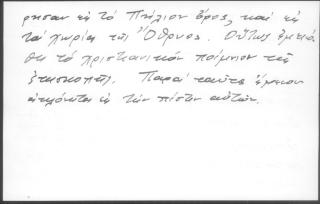 ρησαν εἰς τό Πήλιον ὄρος, καί εἰς
τά χωρία τῆς Ὄθρυος. Οὕτως ἐμειώ-
θη τό χριστιανικόν ποίμνιον τῆς
ἐπισκοπῆς. Παρά ταῦτα ἔμειναν
ἀκλόνητοι εἰς τήν πίστιν αὐτῶν.